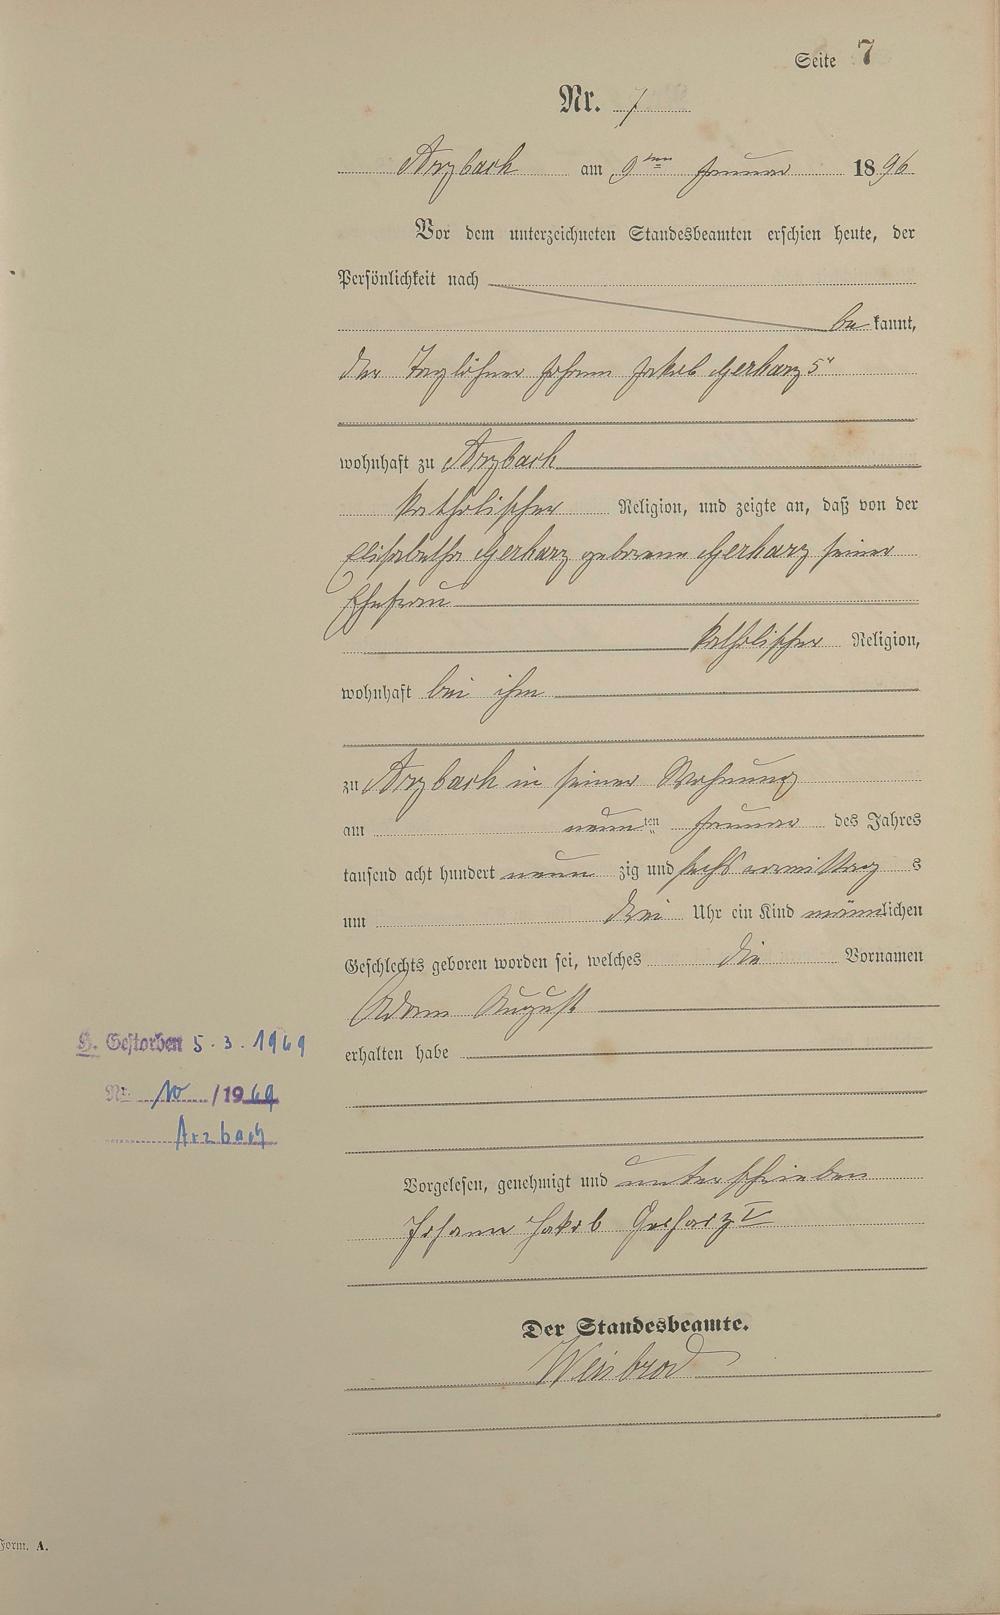 Seite 7
Nr. 7
Arzbach am 9ten Januar 1896
Vor dem unterzeichneten Standesbeamten erschien heute, der
Persönlichkeit nach
bekannt,
der Taglöhner Johann Jakob Gerharz 5r
wohnhaft zu Arzbach
katholischer Religion, und zeigte an, daß von der
Elisabetha Gerharz geborene Gerharz seiner
Ehefrau
katholischer Religion,
wohnhaft bei ihm
zu Arzbach in seiner Wohnung
am neunten Januar des Jahres
tausend acht hundert neunzig und sechs vormittags
um drei Uhr ein Kind männlichen
Geschlechts geboren worden sei, welches die Vornamen
Adam August
erhalten habe
H. Gestorben 5.3.1969
Nr. 10 /1969
Arzbach
Vorgelesen, genehmigt und unterschrieben
Johann Jakob Gerharz V
Der Standesbeamte.
Weisbrod
Form. A.